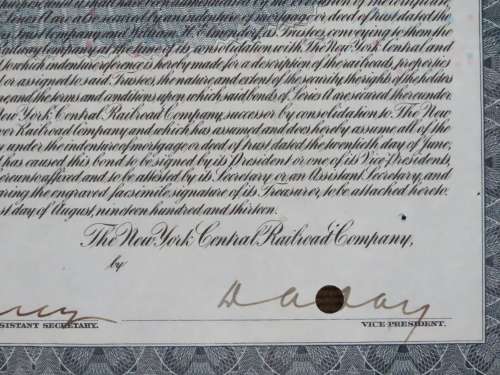 Series A are to be secured by an indenture of mortgage or deed of trust dated the
Trust Company and William H. Elmendorf as Trustees, conveying to them the
Railway Company at the time of its consolidation with The New York Central and
to which indenture reference is hereby made for a description of the railroads, properties
or assigned to said Trustees, the nature and extent of the security, the rights of the holders
same, and the terms and conditions upon which said bonds of Series A are secured thereunder
New York Central Railroad Company, successor by consolidation to The New
River Railroad Company and which has assumed and does hereby assume all of the
under the indenture of mortgage or deed of trust dated the twentieth day of June,
has caused this bond to be signed by its President or one of its Vice-Presidents,
hereunto affixed and to be attested by its Secretary or an Assistant Secretary, and
bearing the engraved facsimile signature of its Treasurer, to be attached hereto.
first day of August, nineteen hundred and thirteen.
The New York Central Railroad Company,
by
ASSISTANT SECRETARY.
VICE-PRESIDENT.